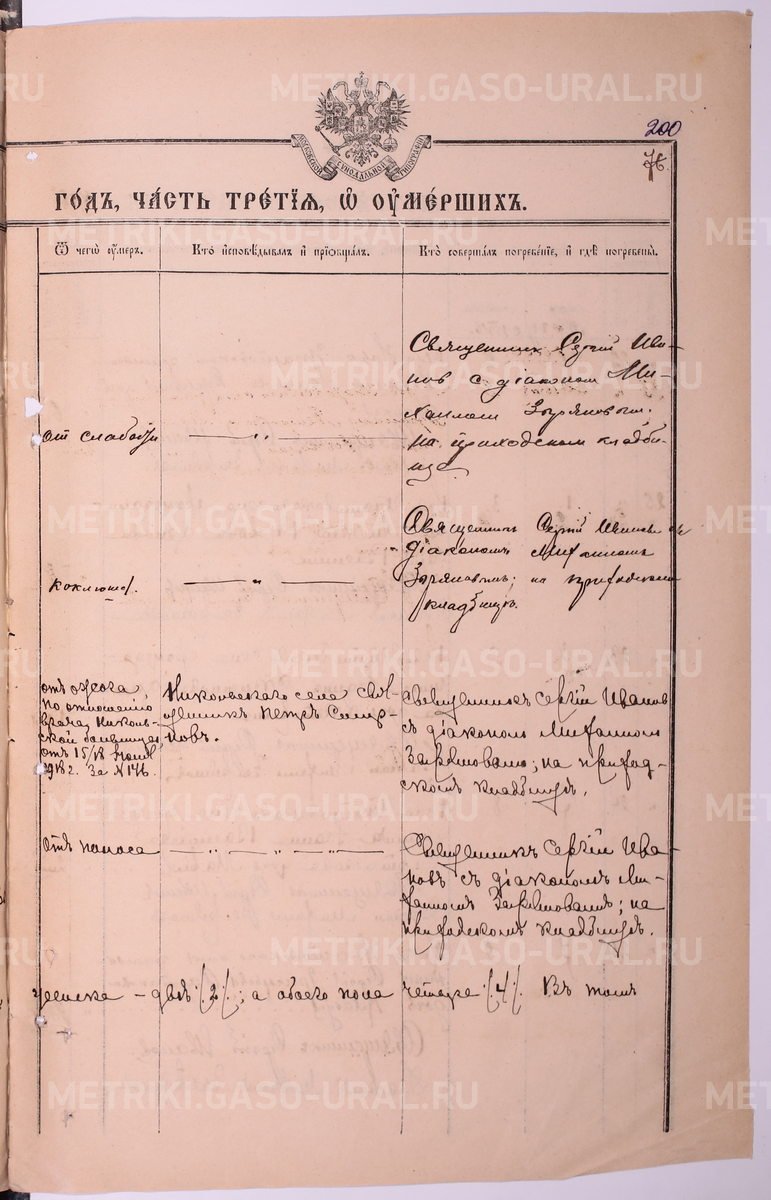 200
76.
МОСКОВСКОЙ СѴНОДАЛЬНОЙ ТИПОГРАФІИ
ГО́ДЪ, ЧА́СТЬ ТРЕ́ТІѦ, Ѽ ОУМЕ́РШИХЪ.
Ѿ чегѡ̀ оу́меръ.
Кто̀ и҆сповѣ́дывалъ и҆ прїѡбща́лъ.
Кто̀ соверша́лъ погребе́нїе, и҆ гдѣ̀ погребены̀.
от слабости
— „ —
Священник Сергий Ива-
нов с діаконом Ми-
хаилом Зыряновым;
на приходском кладби-
ще
коклюша.
— „ —
Священник Сергій Иванов съ
діаконом Михаилом
Зыряновым; на приходском
кладбищѣ.
отъ ожога,
по отношенію
врача Николь-
ской больницы,
отъ 15/18 Іюня
1918 г. За № 146.
Никольскаго села Свя-
щенникъ Петръ Смир-
новъ.
Священникъ Сергій Иванов
съ діаконом Михаилом
Зыряновымъ; на приход-
скомъ кладбищѣ.
Отъ поноса
— „ — „ — „ — „ —
Священникъ Сергій Ива-
новъ съ діакономъ Ми-
хаиломъ Зыряновымъ; на
приходскомъ кладбищѣ.
женска – двѣ /2/; а обоего пола четыре /4/. Въ томъ
METRIKI.GASO-URAL.RU